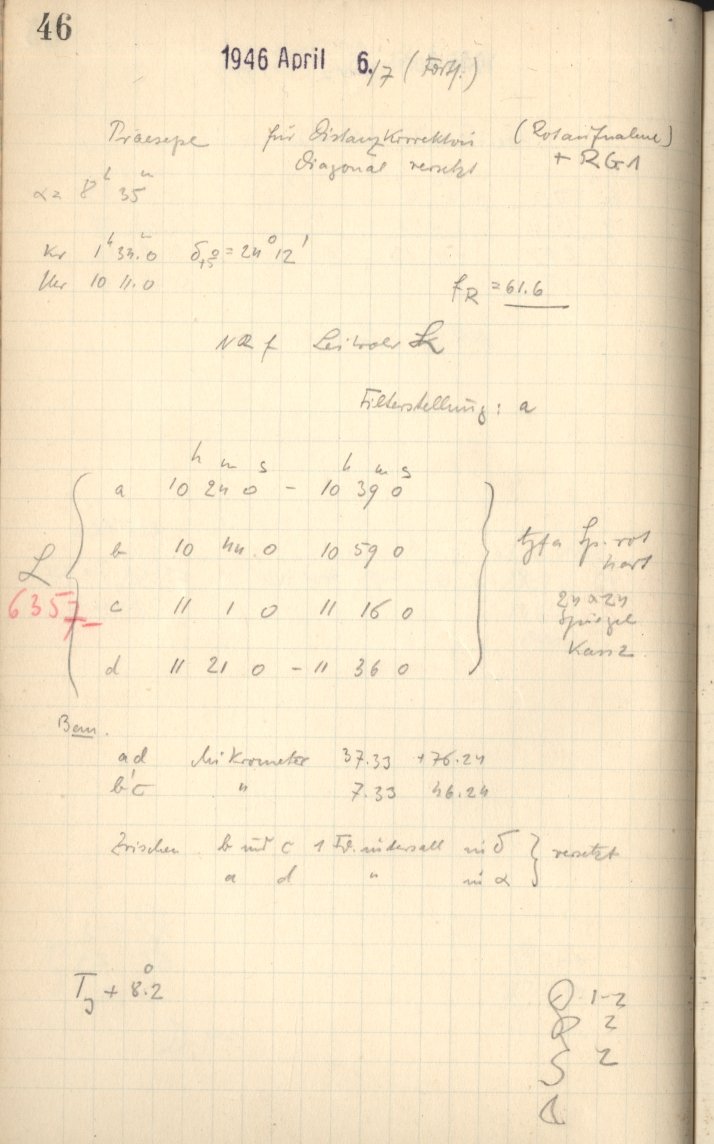 46
1946 April 6./7 (Forts.)
Praesepe für Distanzkorrektion (Rotaufnahme)
Diagonal versetzt + RG1
α = 8h 35m
Kr 1h 33m.0 δ = 24° 12'
Uhr 10 11.0
fR = 61.6
Filterstellung: a
h m s h m s
a 10 24 0 – 10 39 0
b 10 44.0 10 59 0
L
6357
c 11 1 0 11 16 0
d 11 21 0 – 11 36 0
Sp. rot
hart
24 x 24
Spiegel
Bem.
a d Mikrometer 37.33 +76.24
b c " 7.33 46.24
Zwischen b und c 1 intervall in δ } versetzt
a d " in α
+ 8.2
1-2
2
2